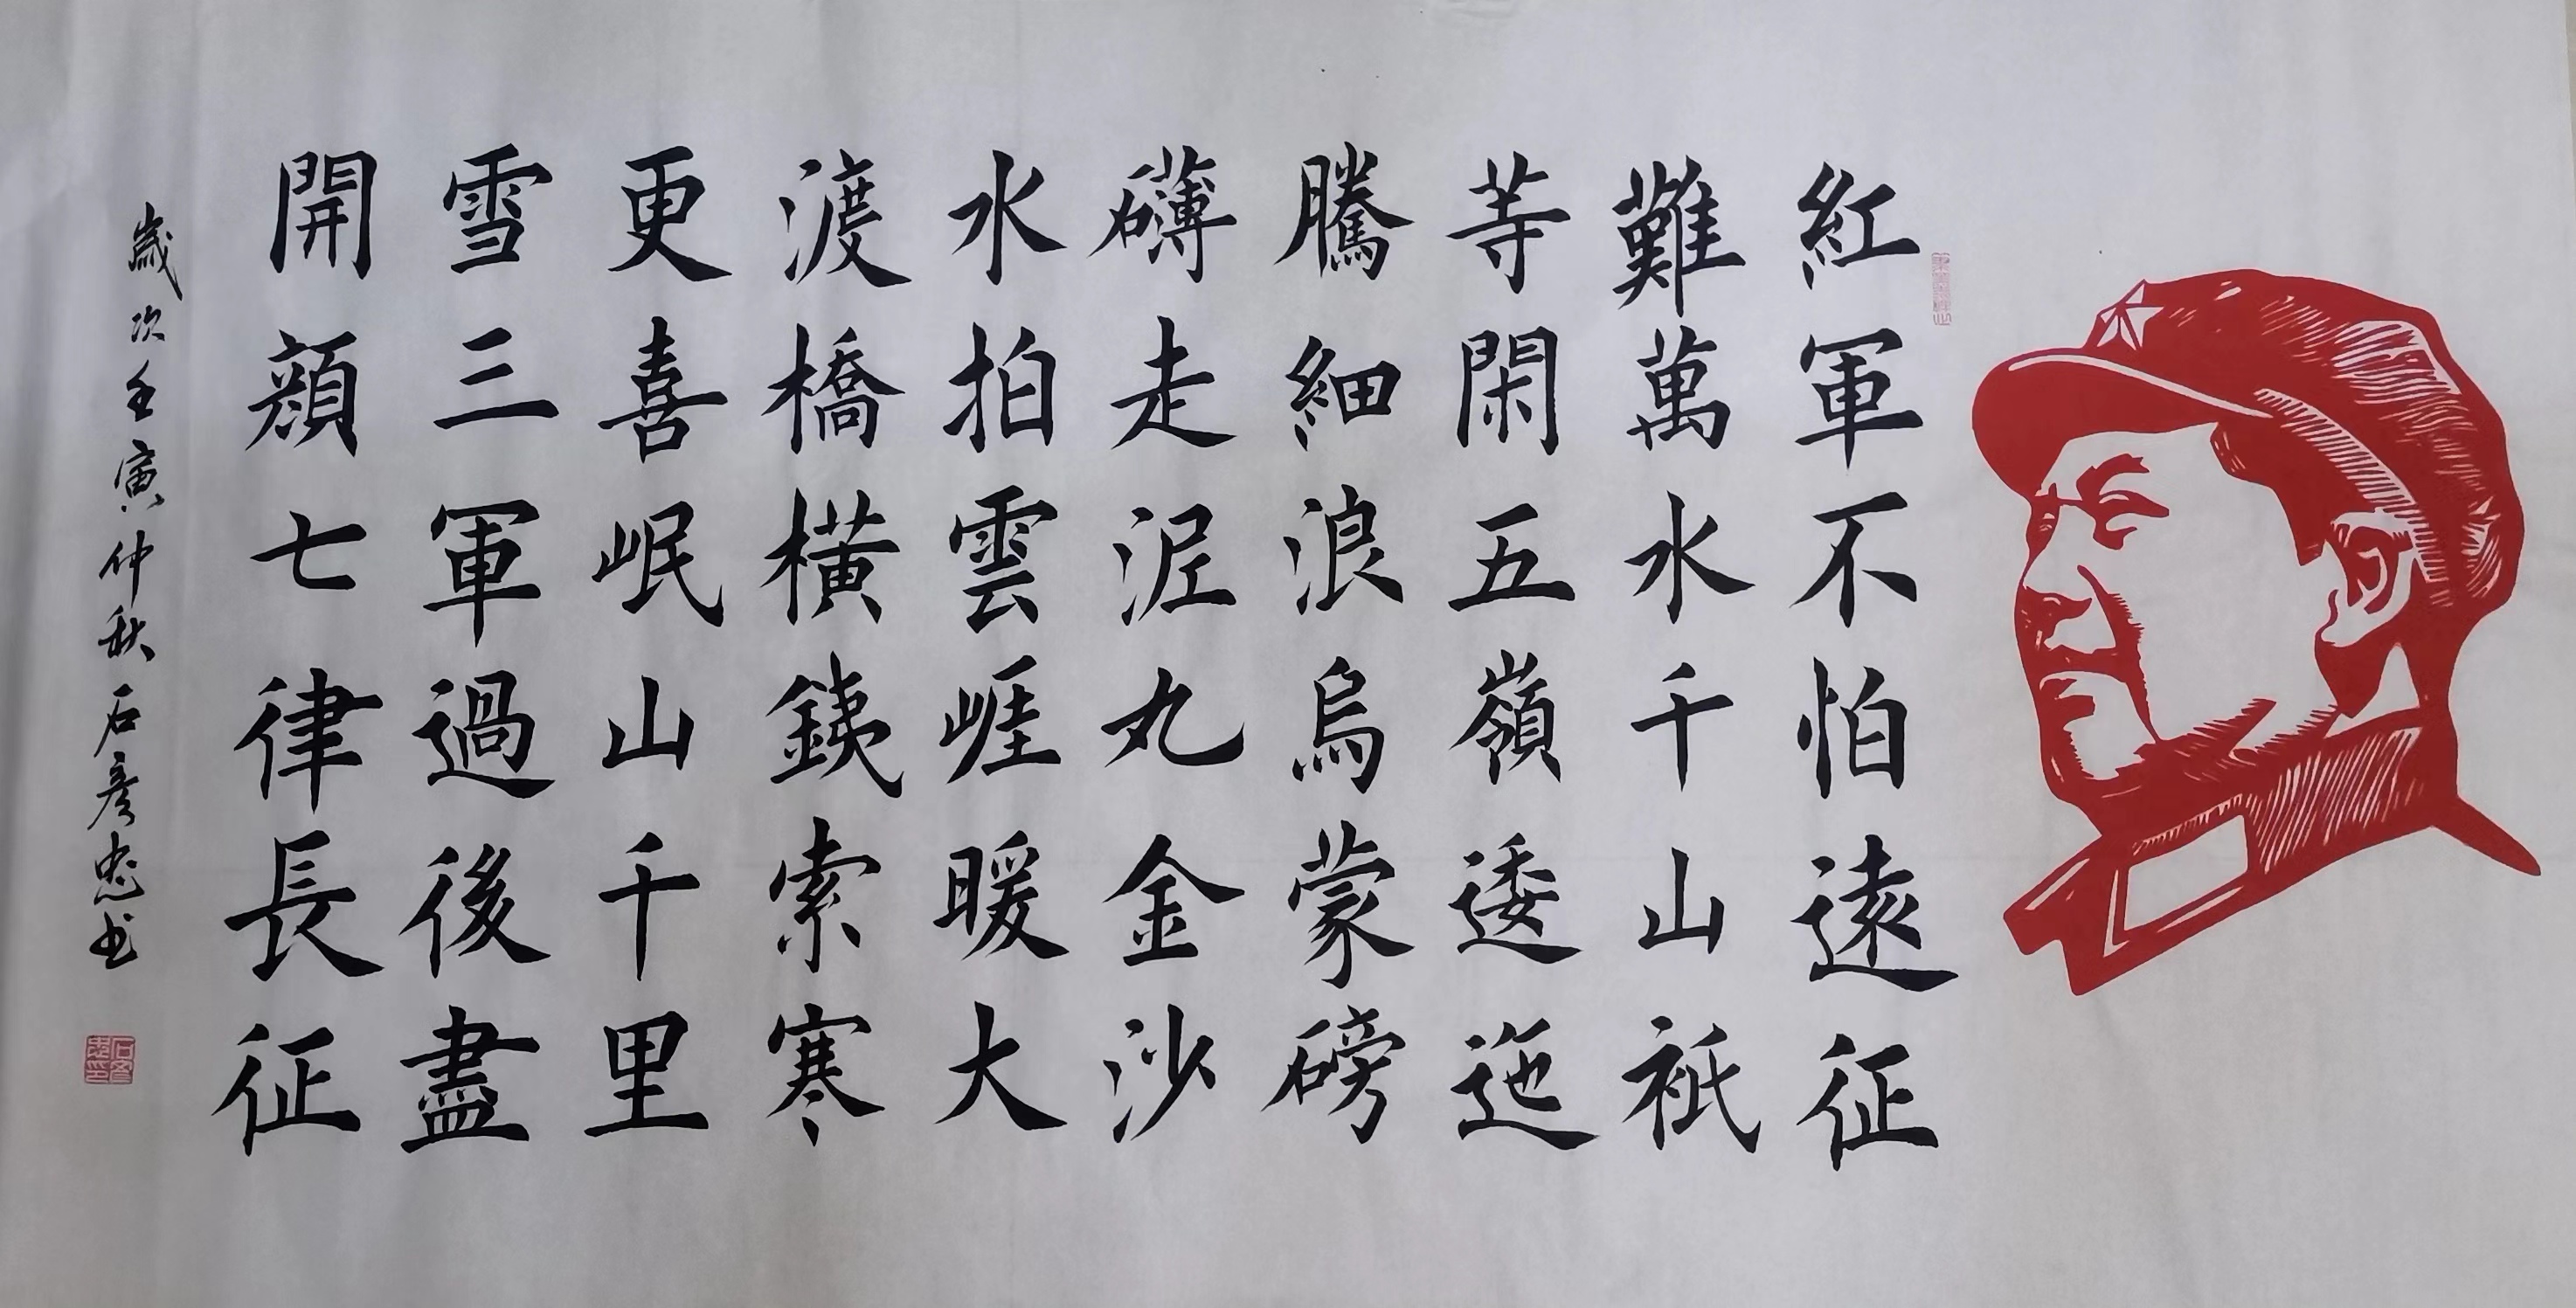 紅軍不怕遠征
難萬水千山衹
等閑五嶺逶迤
騰細浪烏蒙磅
礴走泥丸金沙
水拍雲崖暖大
渡橋橫鉄索寒
更喜岷山千里
雪三軍過後盡
開顔七律長征
歲次壬寅仲秋石彥忠书